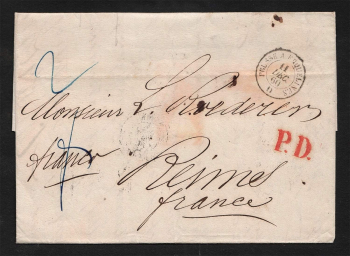 2
PRUSSE
11
DEC.
60
Monsieur L Roederer
P.D.
franco
Reims
france